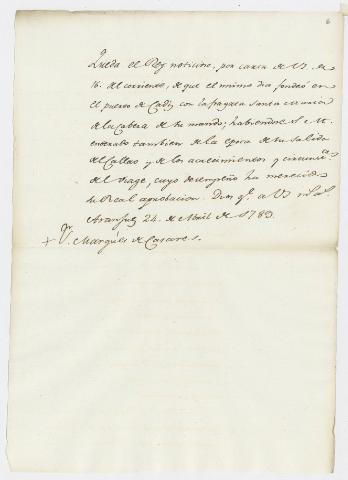 6
Queda el Rey noticioso, por carta de VS. de
16. del corriente, de que el mismo dia fondeó en
el puerto de Cadiz con la fragata Santa Maria
de la Cabeza de su mando; habiendose S. M.
enterado tambien de la epoca de su salida
del Callao y de los acaecimientos y circunst.as
del viage, cuyo desempeño ha merecido
su Real aprobacion. Dios g.e a VS. m.s a.s
Aranjuez 24. de Abril de 1789.
S.or Marqués de Casares.